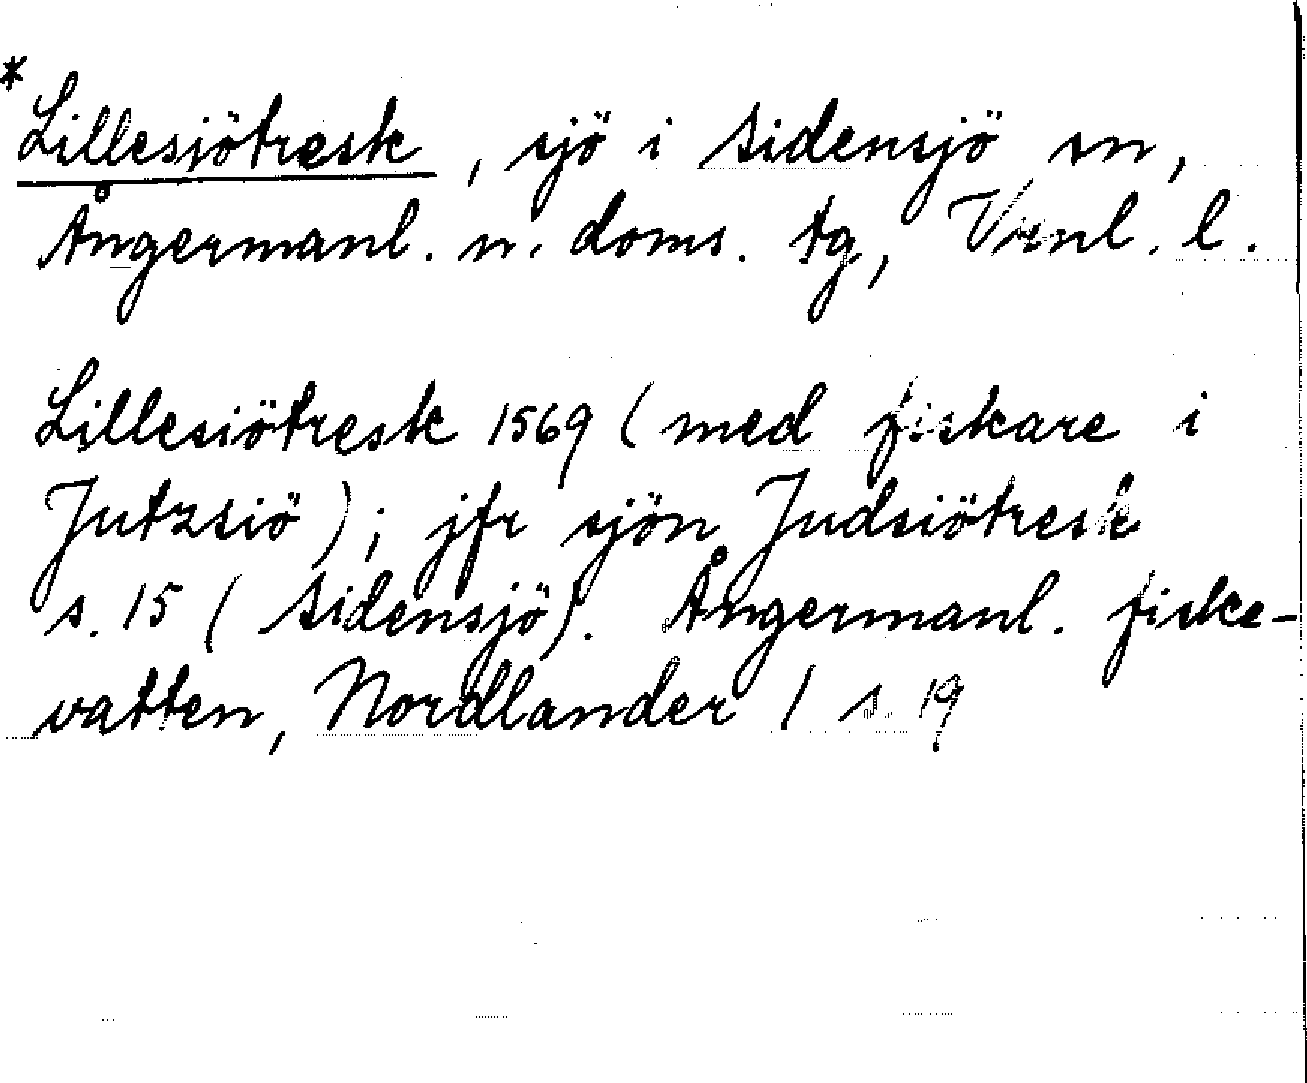 * Lillesjötresk, sjö i Sidensjö sn,
Ångermanl. n. doms. tg, Vrnl. l.
Lillesiötresk 1569 (med fiskare i
Jutzsiö); jfr sjön Judsiötresk
s. 15 (Sidensjö). Ångermanl. fiske-
vatten, Nordlander 1 s. 19